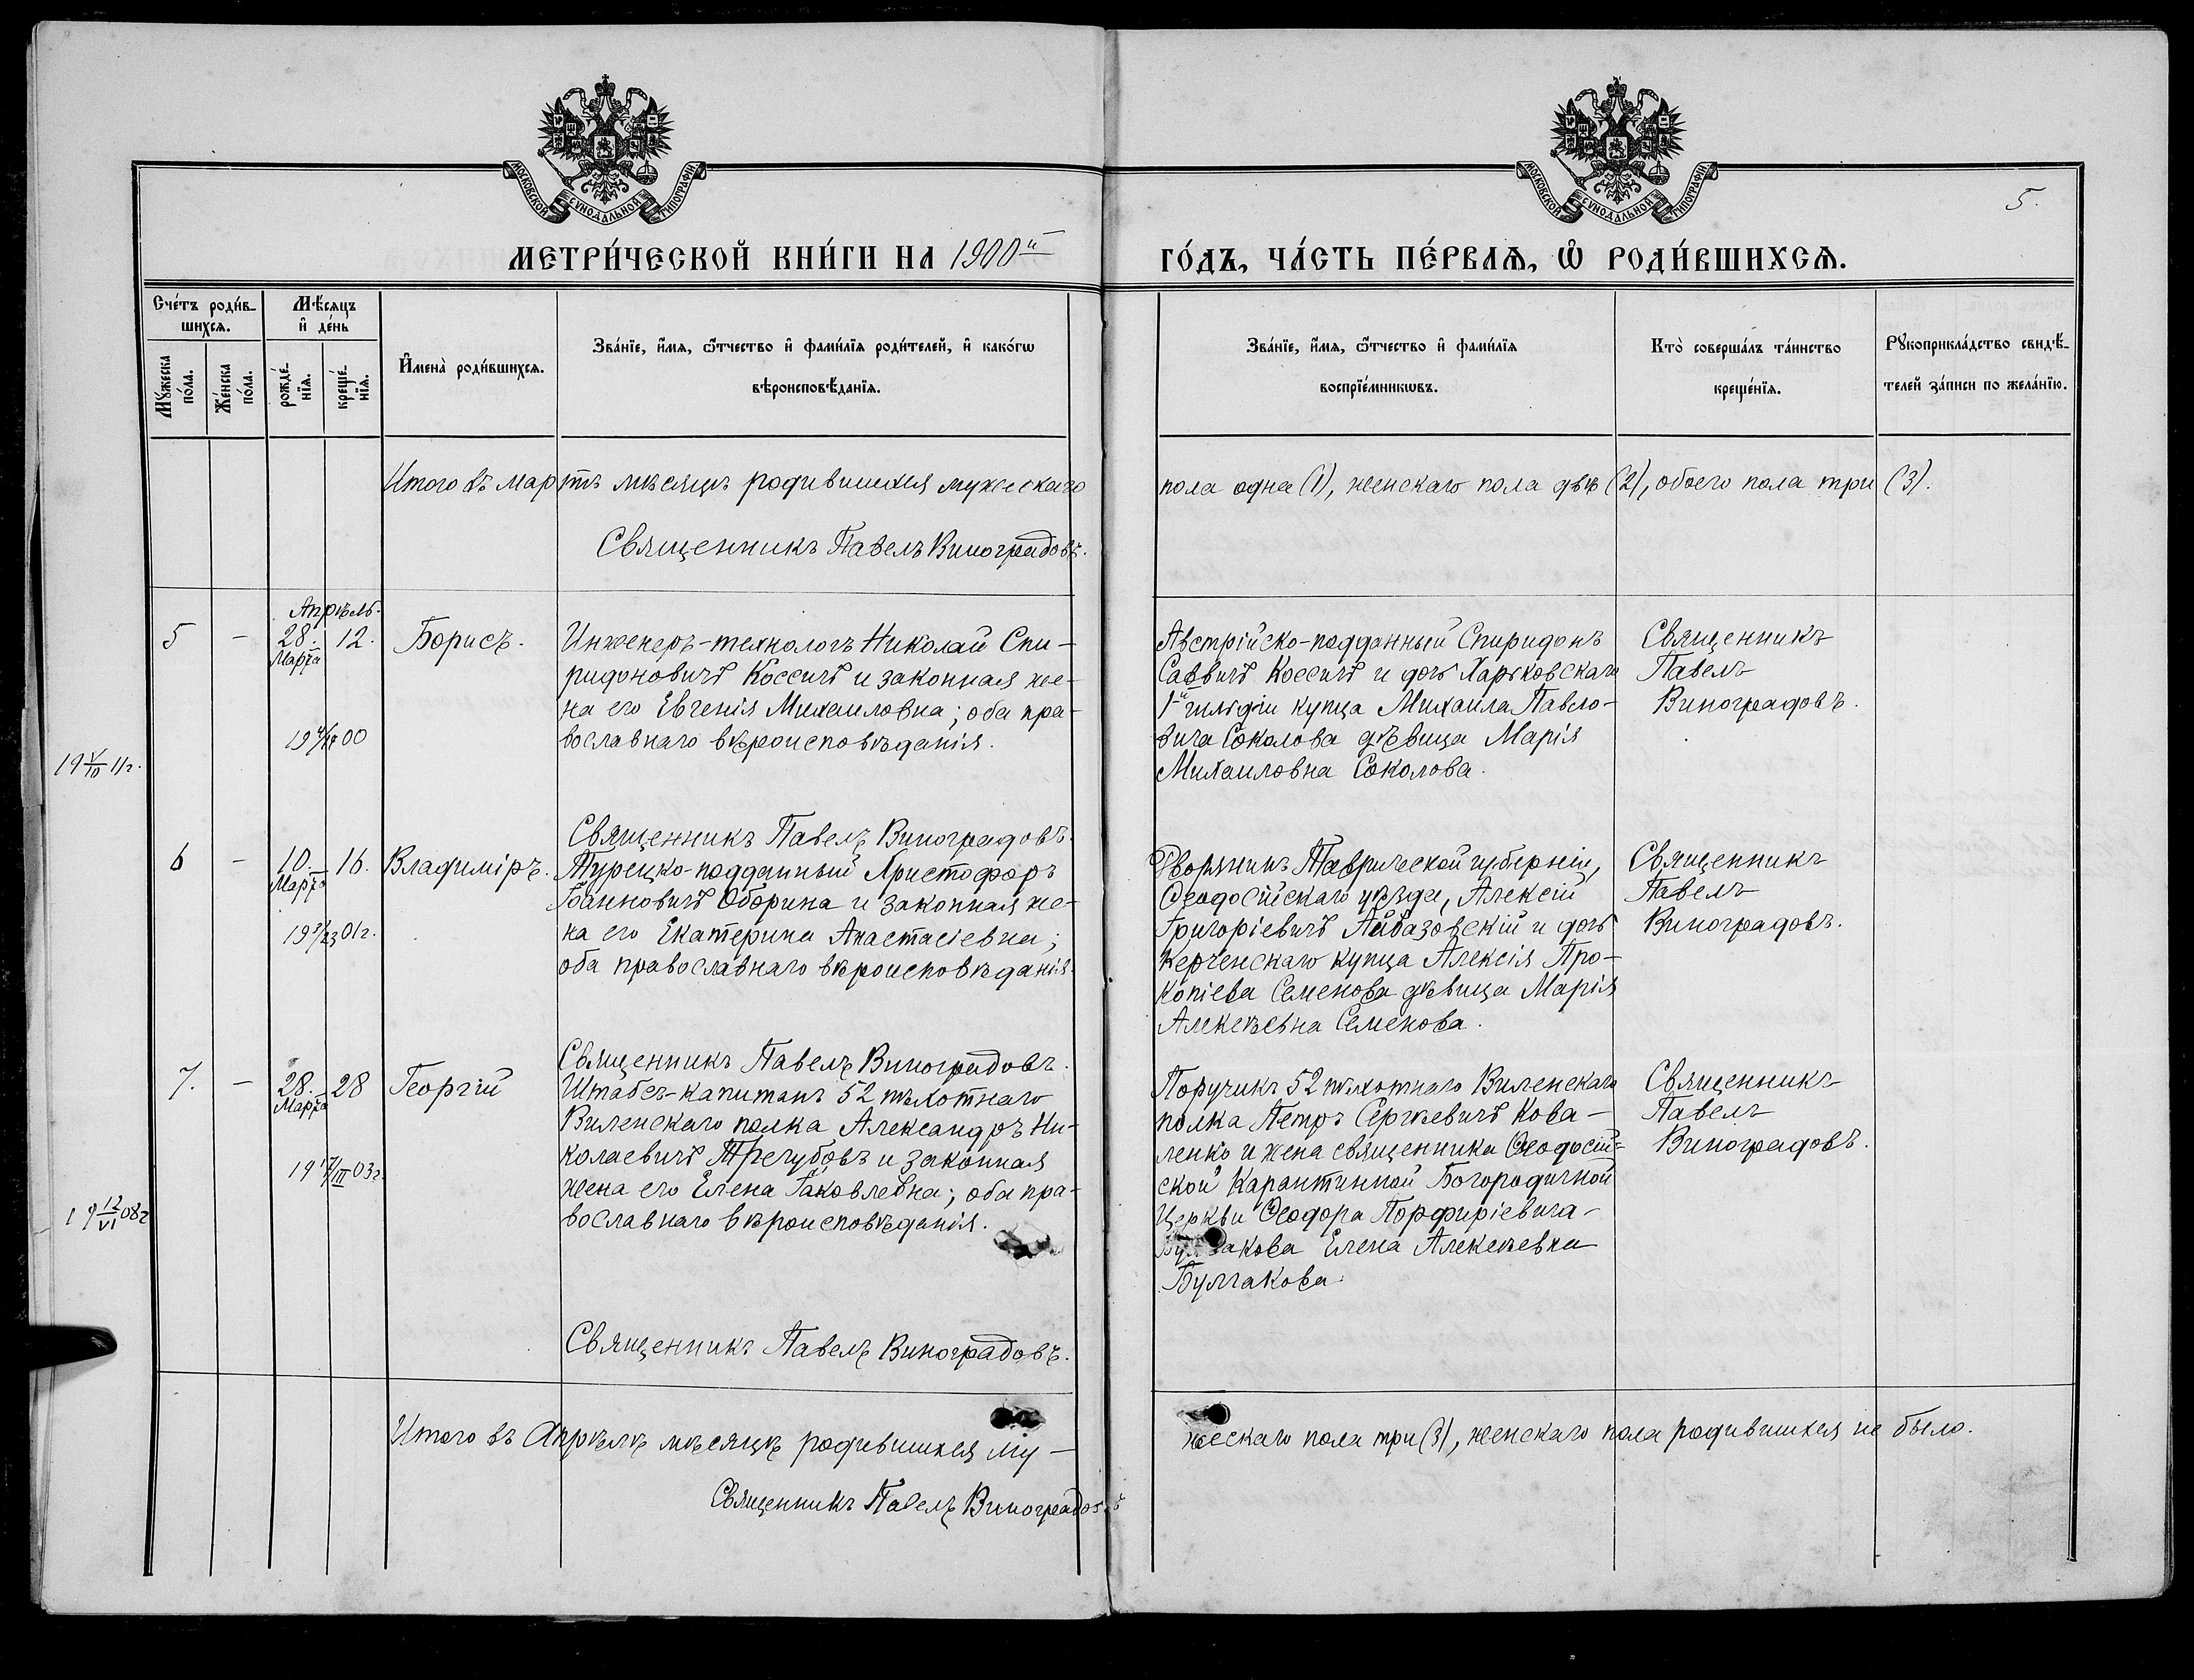 МОСКОВСКОЙ СѴНОДАЛЬНОЙ ТИПОГРАФІИ.
МОСКОВСКОЙ СѴНОДАЛЬНОЙ ТИПОГРАФІИ.
5.
МЕТРИ́ЧЕСКОЙ КНИ́ГИ НА 1900й
ГО́ДЪ, ЧА́СТЬ ПЕ́РВАѦ, Ѡ҆ РОДИ́ВШИХСѦ.
Счётъ роди́в-
шихсѧ.
Мꙋ́жеска
по́ла.
Же́нска
по́ла.
Мѣ́сѧцъ
и҆ де́нь
рожде́-
нїѧ.
креще́-
нїѧ.
И҆мена̀ роди́вшихсѧ.
Зва́нїе, и҆́мѧ, ѻ҆́тчество и҆ фами́лїѧ роди́телей, и҆ како́гѡ
вѣроисповѣ́данїѧ.
Зва́нїе, и҆́мѧ, ѻ҆́тчество и҆ фами́лїѧ
воспрїе́мникѡвъ.
Кто̀ соверша́лъ та́инство
креще́нїѧ.
Рꙋкоприкла́дство свидѣ́-
телей за́писи по жела́нїю.
Итого въ мартѣ мѣсяцѣ родившихся мужескаго
пола одна (1), женскаго пола двѣ (2), обоего пола три (3).
Священникъ Павелъ Виноградовъ.
Апрѣль.
5 - 28. Марта 12. Борисъ.
Инженеръ-технологъ Николай Спи-
ридоновичъ Коссичъ и законная же-
на его Евгенія Михаиловна; оба пра-
вославнаго вѣроисповѣданія.
Австрійско-подданный Спиридонъ
Саввичъ Коссичъ и дочь Харьковскаго
1й гильдіи купца Михаила Павло-
вича Соколова дѣвица Марія
Михаиловна Соколова.
Священникъ
Павелъ
Виноградовъ.
19 00
19 V/10 11г.
Священникъ Павелъ Виноградовъ.
6 - 10. Марта 16. Владиміръ.
Турецко-подданный Христофоръ
Іоанновичъ Оборина и законная же-
на его Екатерина Анастасіевна;
оба православнаго вѣроисповѣданія.
Дворянинъ Таврической губерніи,
Ѳеодосійскаго уѣзда, Алексій
Григоріевичъ Айвазовскій и дочь
Керченскаго купца Алексія Про-
копіева Семенова дѣвица Марія
Алексѣевна Семенова.
Священникъ
Павелъ
Виноградовъ.
19 01г.
Священникъ Павелъ Виноградовъ.
7. - 28. Марта 28 Георгій
Штабсъ-капитанъ 52 пѣхотнаго
Виленскаго полка Александръ Ни-
колаевичъ Трегубовъ и законная
жена его Елена Іаковлевна; оба пра-
вославнаго вѣроисповѣданія.
Поручикъ 52 пѣхотнаго Виленскаго
полка Петръ Сергѣевичъ Кова-
ленко и жена священника Ѳеодосій-
ской Карантинной Богородичной
Церкви Ѳеодора Порфиріевича
Булгакова Елена Алексѣевна
Булгакова.
Священникъ
Павелъ
Виноградовъ.
19 17/III 03г.
19 12/VI 08г
Священникъ Павелъ Виноградовъ.
Итого въ Апрѣлѣ мѣсяцѣ родившихся му-
жескаго пола три (3), женскаго пола родившихся не было.
Священникъ Павелъ Виноградовъ